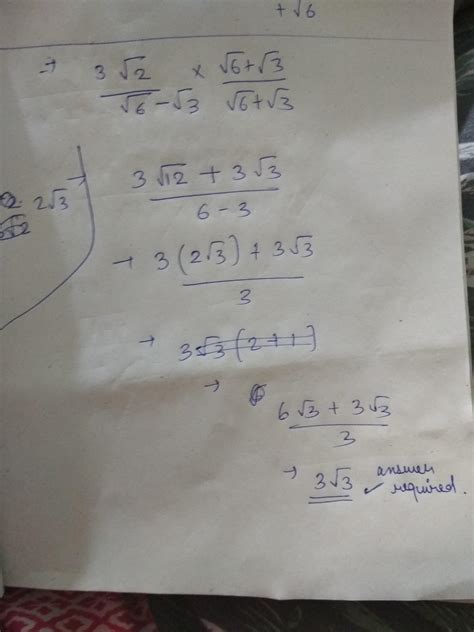 + √6
→ 3√2 / √6 - √3 × √6 + √3 / √6 + √3
→ 3√12 + 3√3 / 6 - 3
2√3
→ 3(2√3) + 3√3 / 3
→ 3√3(2+1)
→ 6√3 + 3√3 / 3
→ 3√3 ✓ answer required.